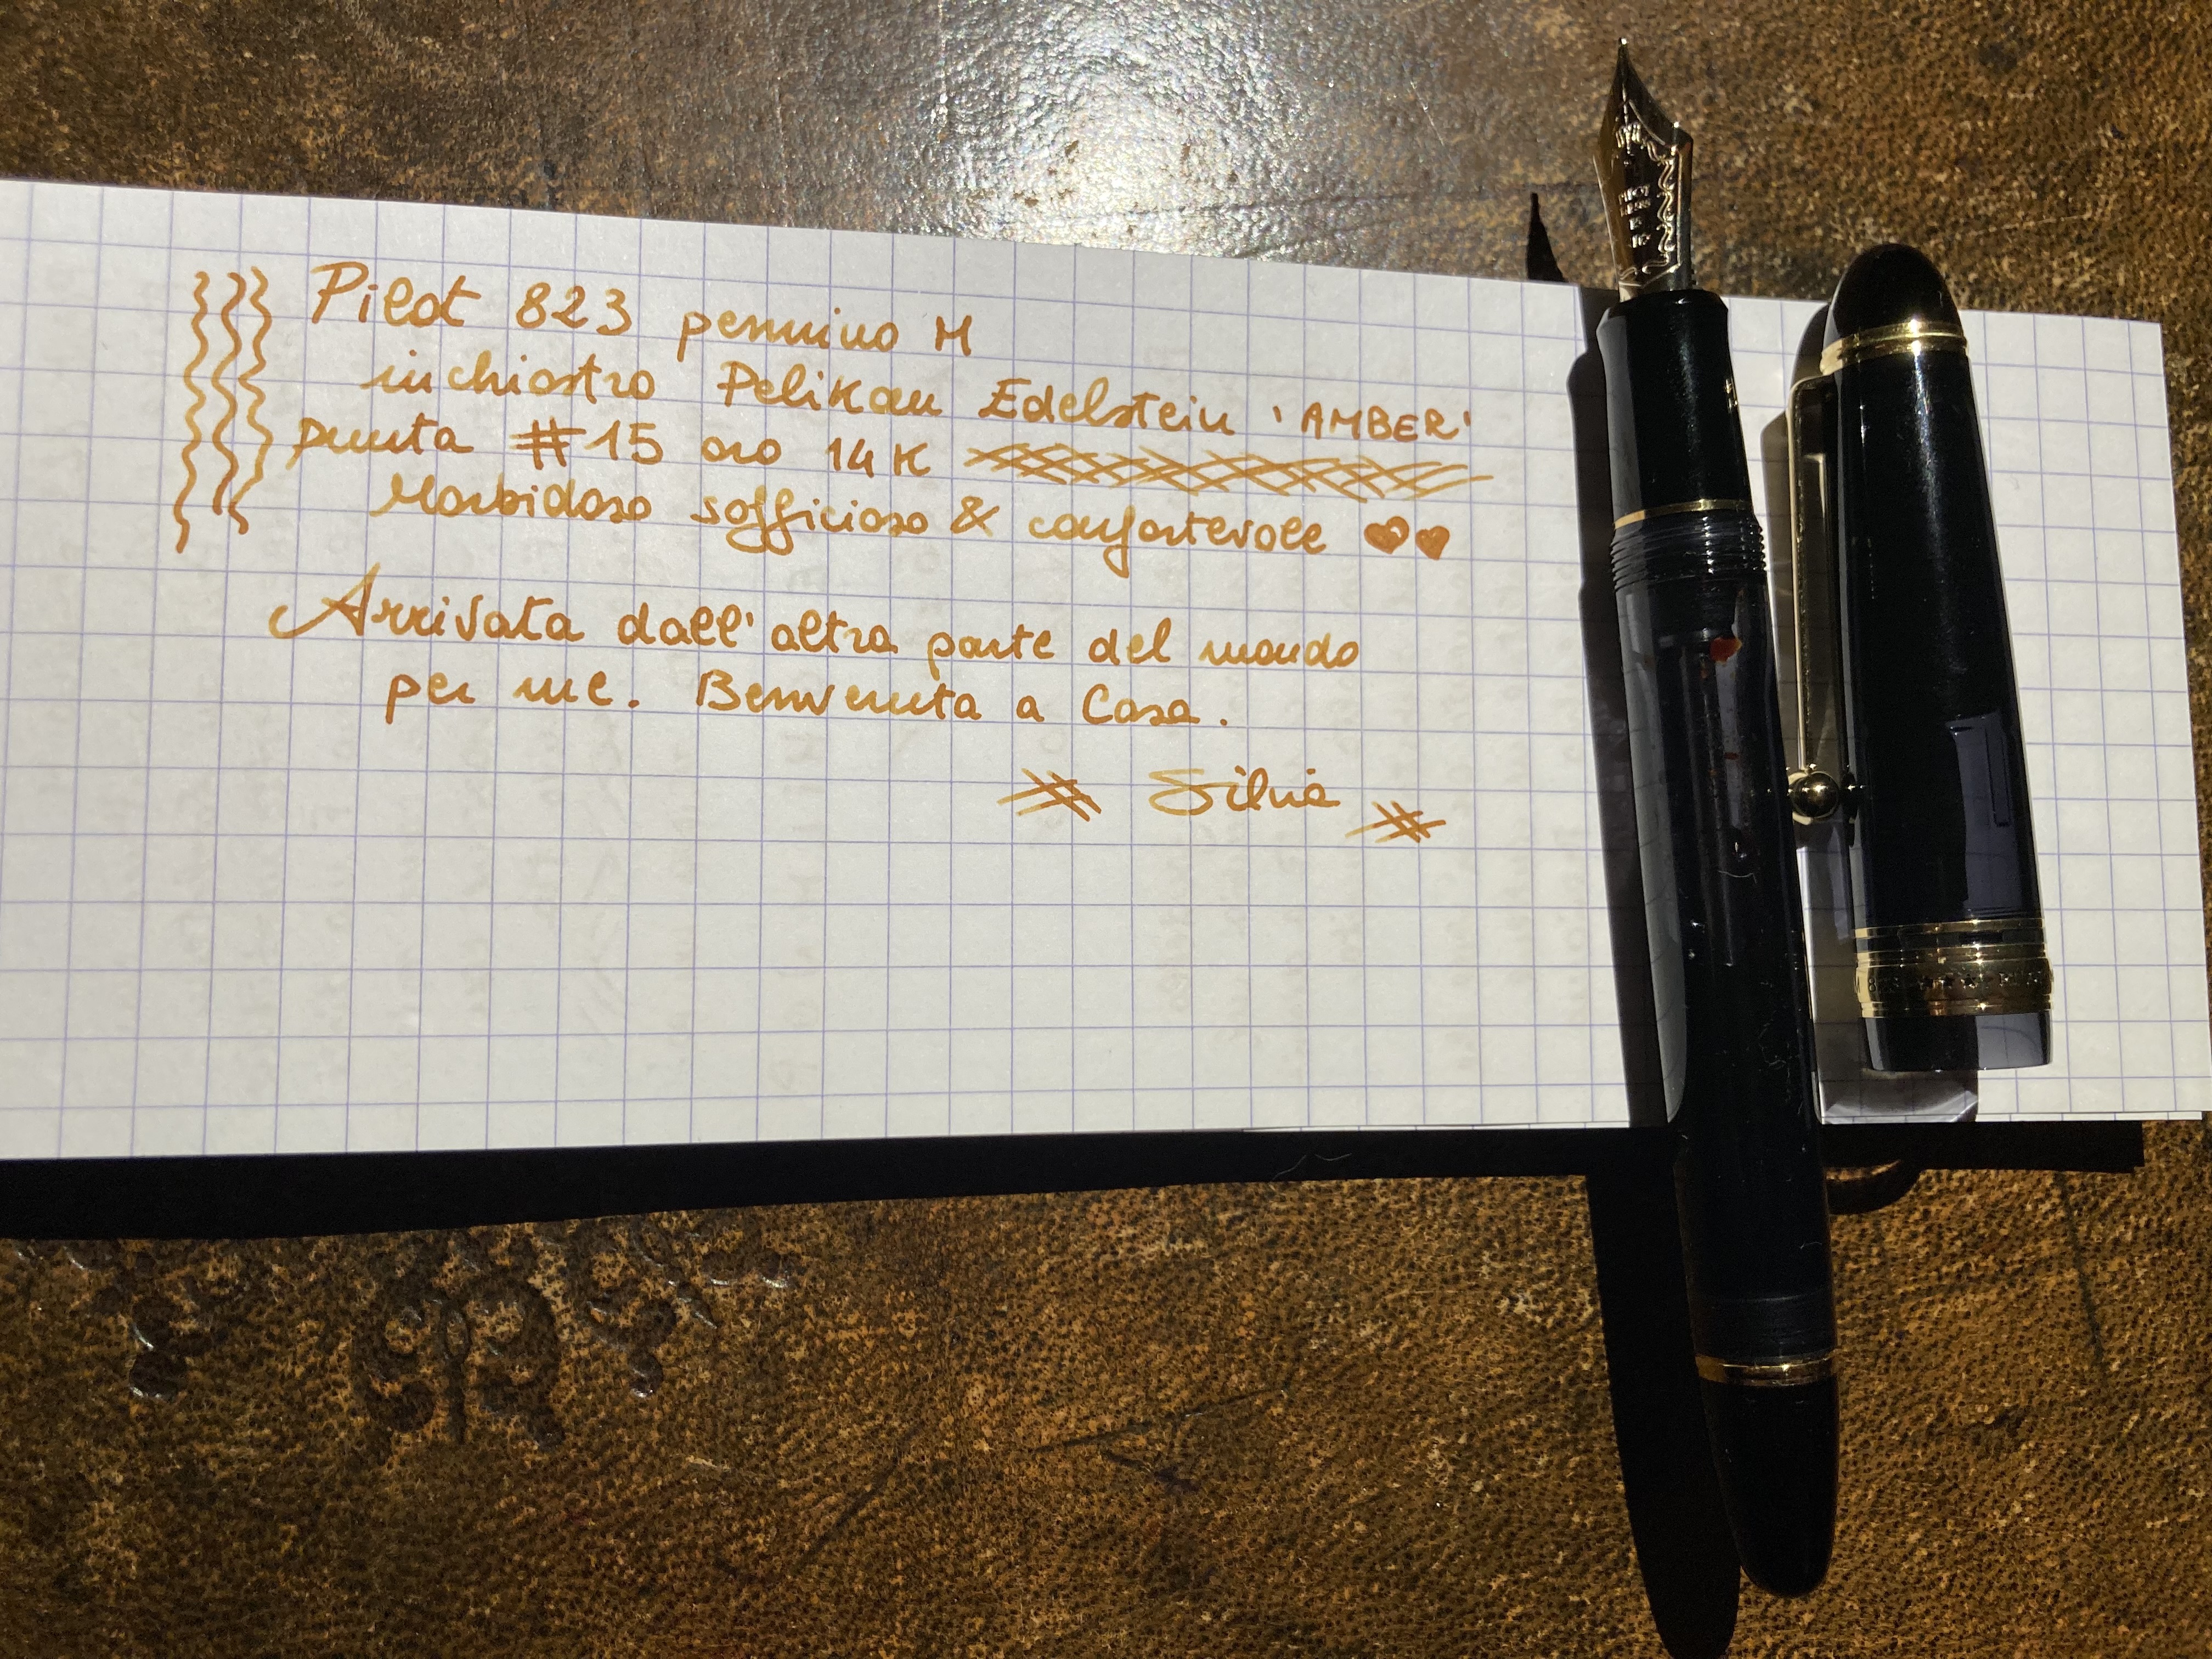 Pilot 823 pennino M
inchiostro Pelikan Edelstein 'AMBER'
punta #15 oro 14K
Morbidoso sofficioso & confortevole ♥♥
Arrivata dall'altra parte del mondo
per me. Benvenuta a Casa.
Silvia